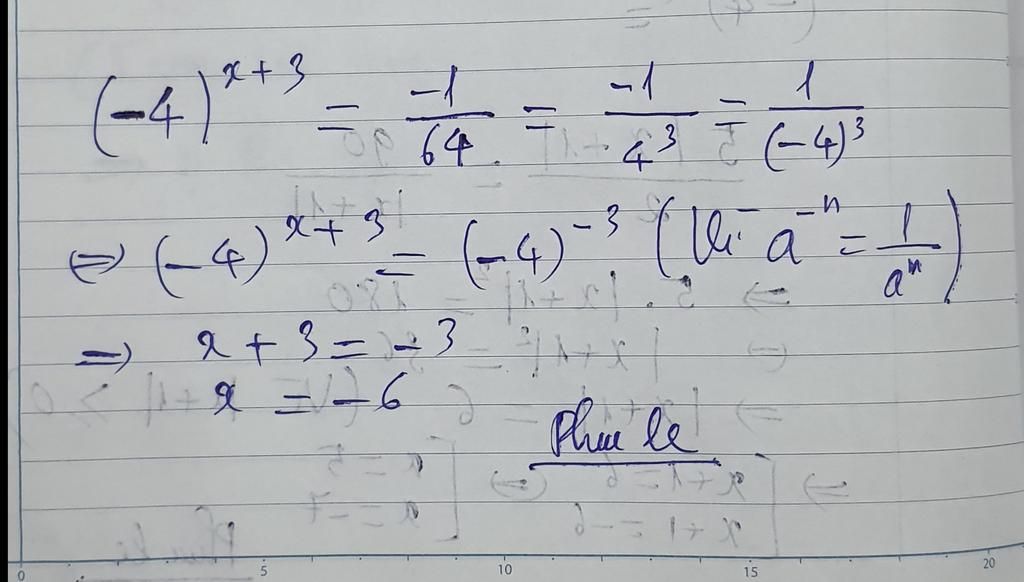 (-4)^{x+3} = \frac{-1}{64} = \frac{-1}{4^3} = \frac{1}{(-4)^3}
⇔ (-4)^{x+3} = (-4)^{-3} (Vì a^{-n} = \frac{1}{a^n})
⇒ x + 3 = -3
x = -6
0 5 10 15 20